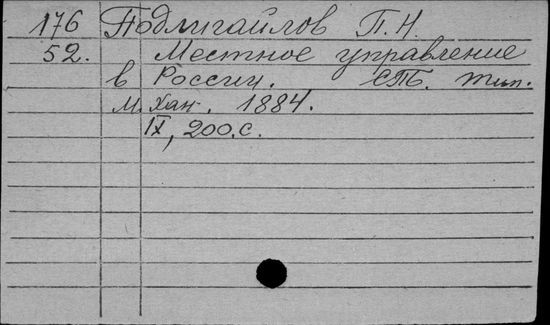 176 Подлигайлов П. Н.
52. Местное управление
в России. СПБ. тип.
М. Хан. 1884.
IX, 200.с.